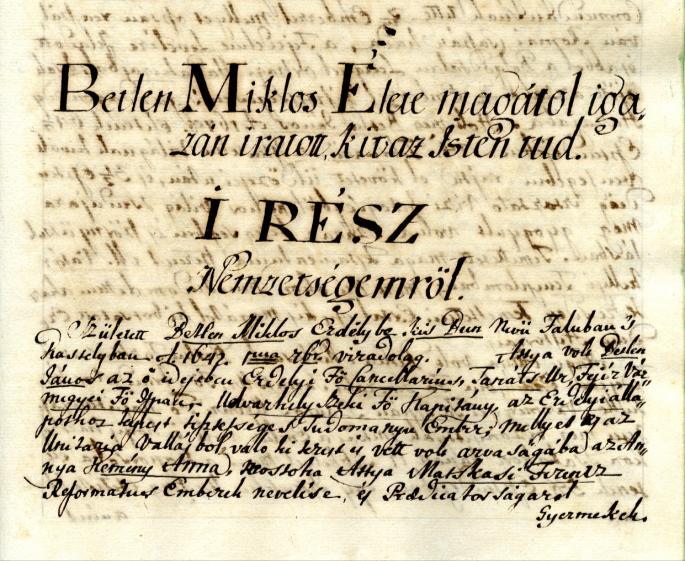 Betlen Miklos Élete magátol iga,
zán iratott, kit az Isten tud.
I RÉSZ
Nemzetségemröl.
Született Betlen Miklos Erdélybe kis Bun Nevü Faluban 's
kastélyban 1642. 1ma 7br. viradolag. Attya volt Betlen
János az ö idejében Erdélyi Fö Cancellarius, Tanáts Ur, Fejér Vár
megyei Fö Ispán, Udvarhely Széki Fö Kapitány, az Erdélyi álla,
pothoz képest tisztességes Tudományu Ember, mellyet az
Unitaria Vallásbol valo ki térést is vett volt árvaságába az An,
nya Kemény Anna, Mostoha Attya Matskasi Ferentz
Reformatus Emberek nevelése, és Praedicatorságárol
Gyermekek.